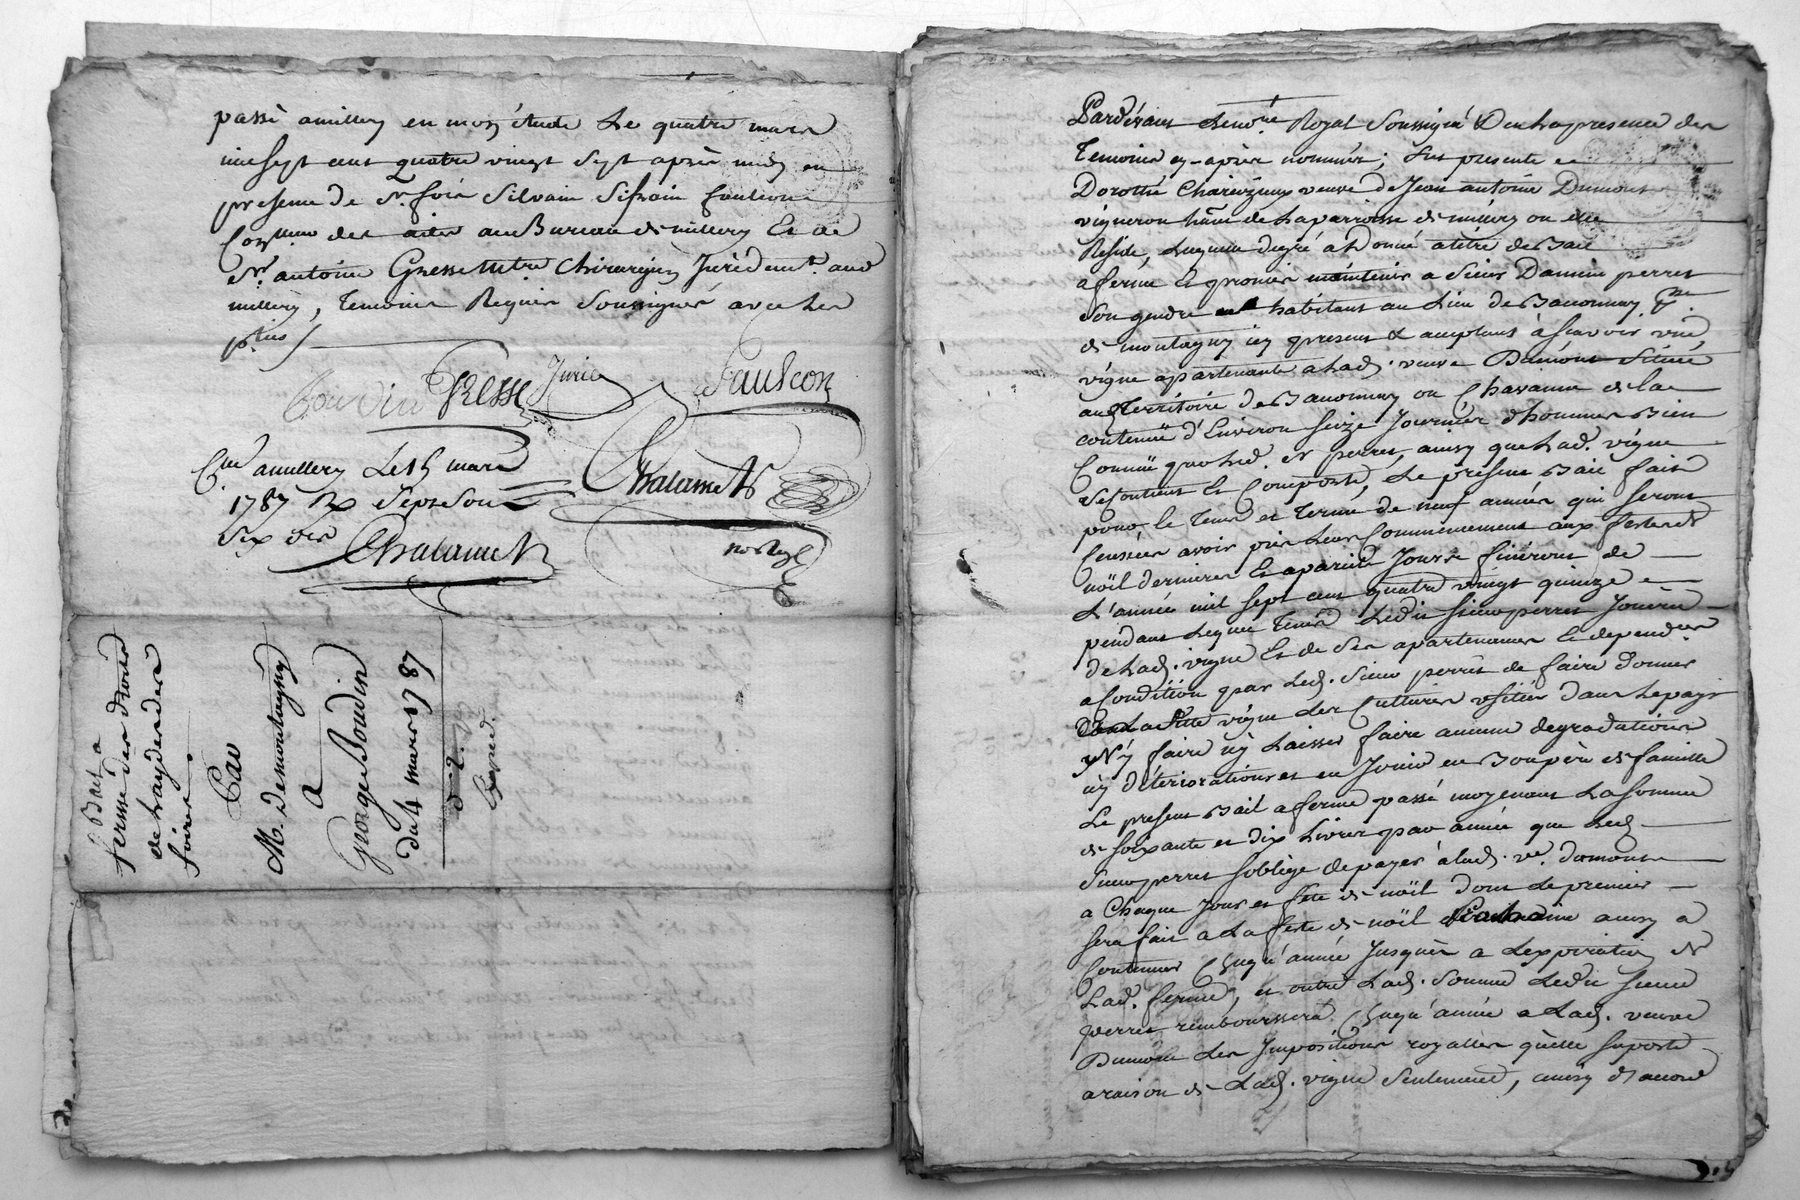 passé amillery en mon étude Le quatre mars
mil sept cent quatre vingt sept après midy en
presence de Sr. Silvain faulcon
des aides au Bureau de millery Et de
Sr. antoine Gresse Mtre Chirurgien Juré demt. aud
millery, Temoins Requis Soussignés avec Les
pties
Boudin Gresse Juré Faulcon
Chalamet
notre
Clé. amillery Le 15 mars
1787 Rx Sept Sou
Six der
Chalamet
Bail a
fermse des droits
de Layde de
foires
Par
M. De montagny
A
George Boudin
Du 4 mars 1787
Pardevant Le nore Royal Soussigné & en La presence des
Temoins cy-après nommés; fut presente
Dorothé veuve de Jean antoine Dumont
vigneron hant de La parroisse de millery ou elle
Reside, Laquelle de gré a Donné atitre de Bail
aferme Et promis maintenir a Sieur perret
Son gendre habitant au Lieu de Bavonnay Psse
de montagny icy present & acceptant à scavoir une
vigne apartenante a Lad. veuve Dumont Située
au Territoire de Bavonnay ou Chavanne de La
contenüe d'Environ Seize Journées d'hommes Bien
Connüe par Led. Sr perret, ainsy que Lad. vigne
Se Contient Et Comporte, Le present Bail fait
pour le Tems et Terme de neuf années qui Seront
Censées avoir pris Leur Commencement aux festes de
noël dernieres Et a pareil Jour finiront de
L'année mil Sept cent quatre vingt quinze
pendant Lequel Tems Ledit Sieur perret Jouira
de Lad. vigne Et de Ses apartenances Et dependces
a Condition par Led. Sieur perret de faire donner
a La ditte vigne Les Cultures usitées dans Le pays
N'y faire n'y Laisser faire aucune degradations
n'y déteriorations et en Jouir en Bon père de famille
Le present Bail aferme passé moyenant La Somme
de Soixante et dix Livres par année que Led.
Sieur perret s'oblige de payer à Lad. ve. dumont
a Chaque Jour et fête de noël dont Le premier
Sera fait a La feste de noël Prochaine ainsy a
Continuer Chaqu'année Jusques a L'expiration de
Lad. ferme, et outre Lad. Somme Ledit Sieur
perret remboursera Chaqu'année a Lad. veuve
Dumont Les Impositions royalles qu'elle Suporte
a raison de Lad. vigne Seulement, ainsy d'accord